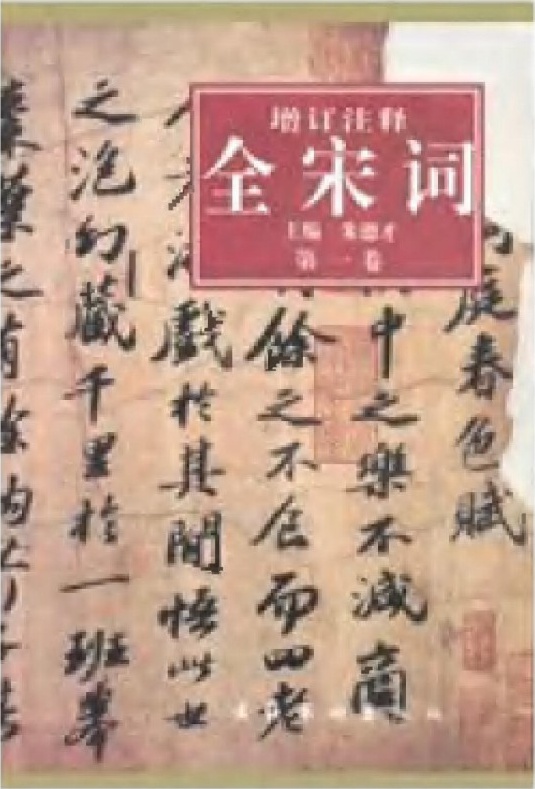 增订注释
全宋词
主编 朱德才
第一卷
庭春色賦
中之樂不減商
餘之不食而四老
戲於其間悟此世
之泡幻藏千里於一班舉
葉之有餘納